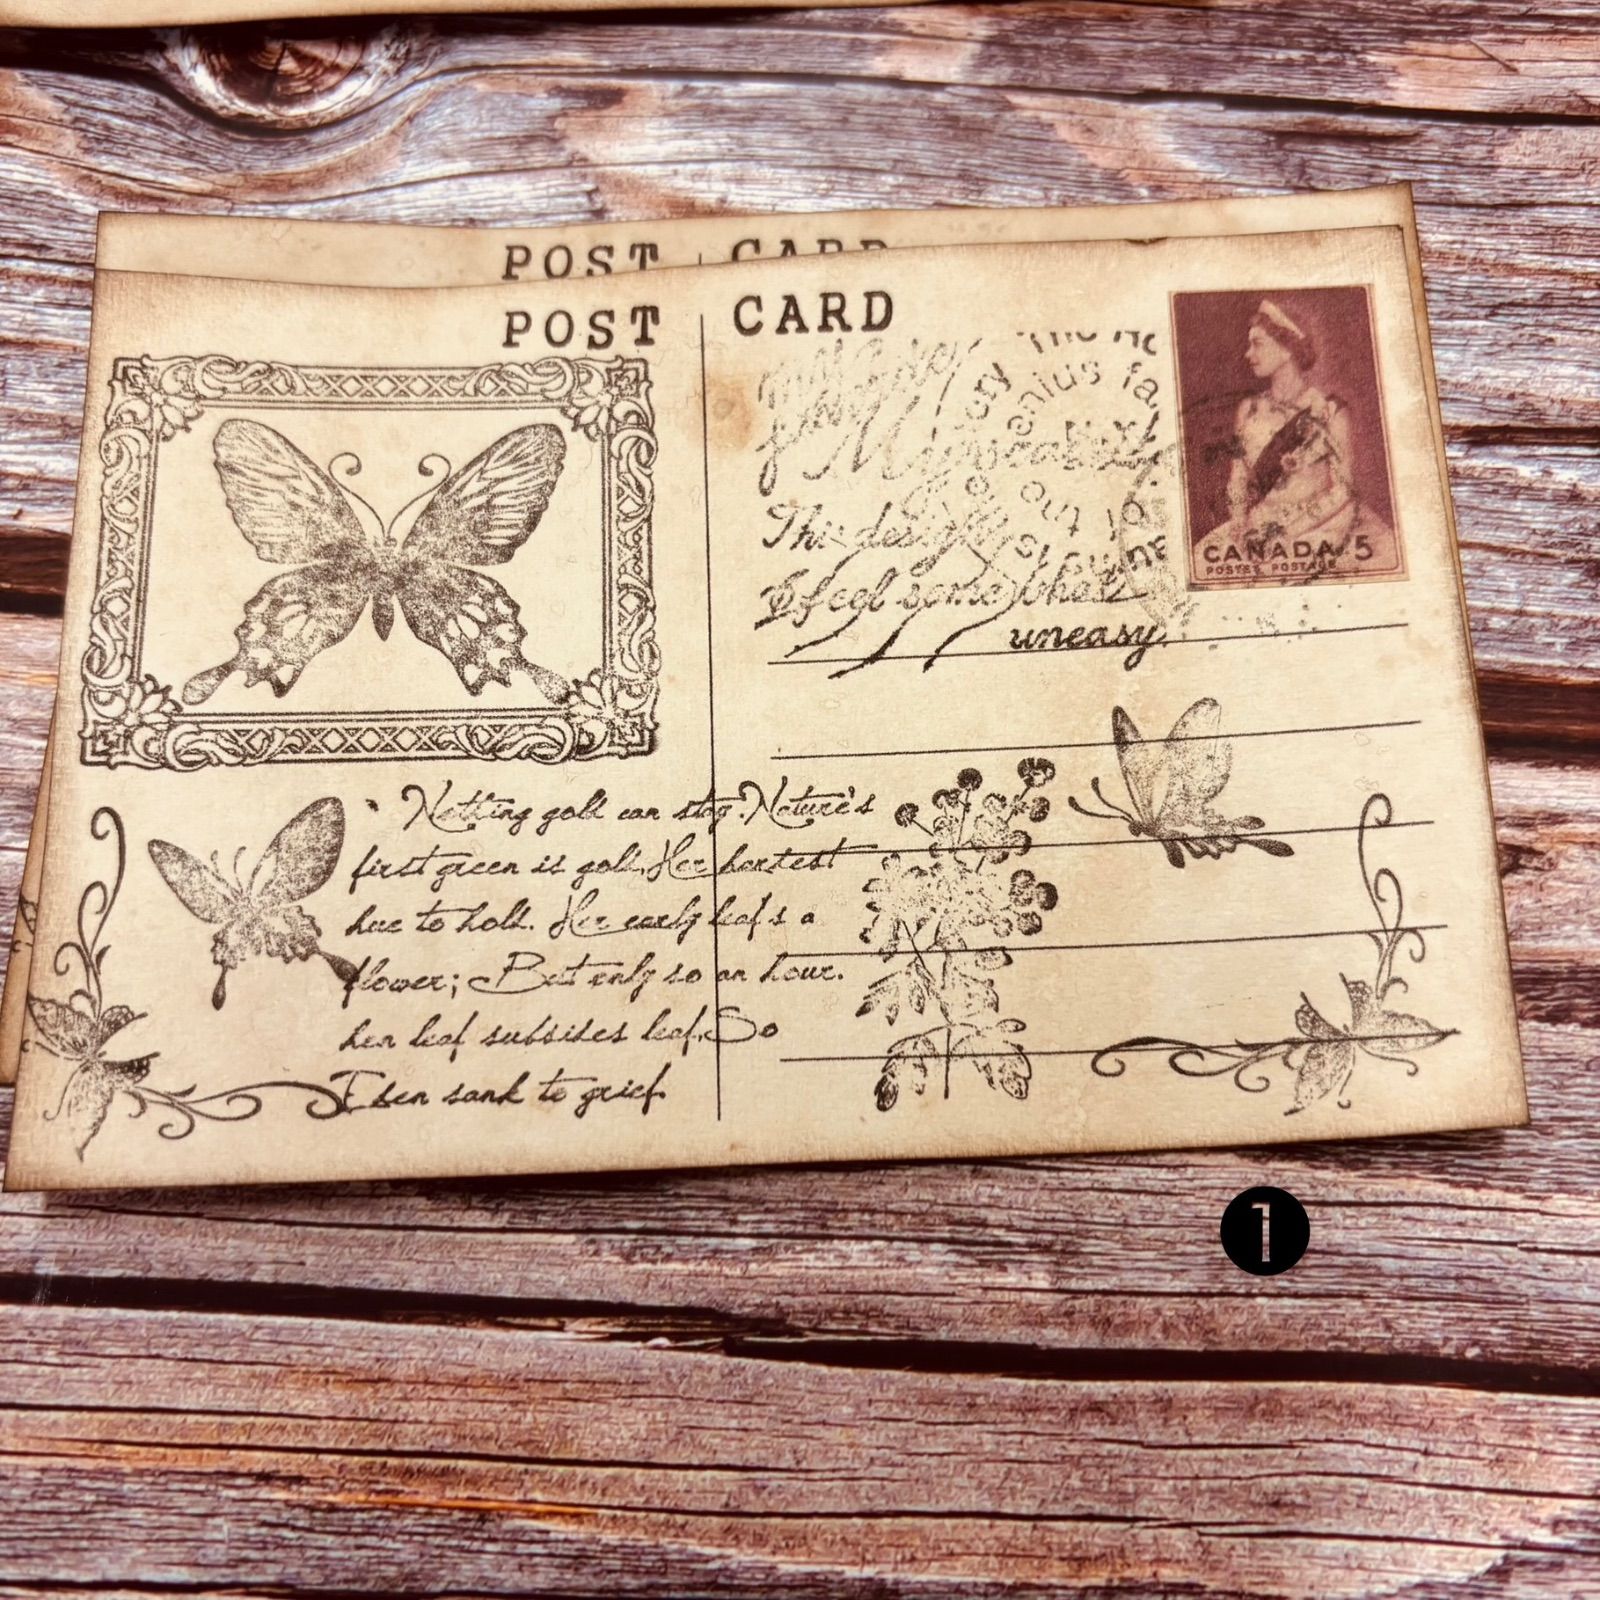 POST CARD
POST CARD
This design
I feel somewhat
uneasy.
CANADA 5
POSTES POSTAGE
Nothing gold can stay. Nature's
first green is gold. Her hardest
hue to hold. Her early leaf's a
flower; But only so an hour.
hen leaf subsides leaf. So
Eden sank to grief
1